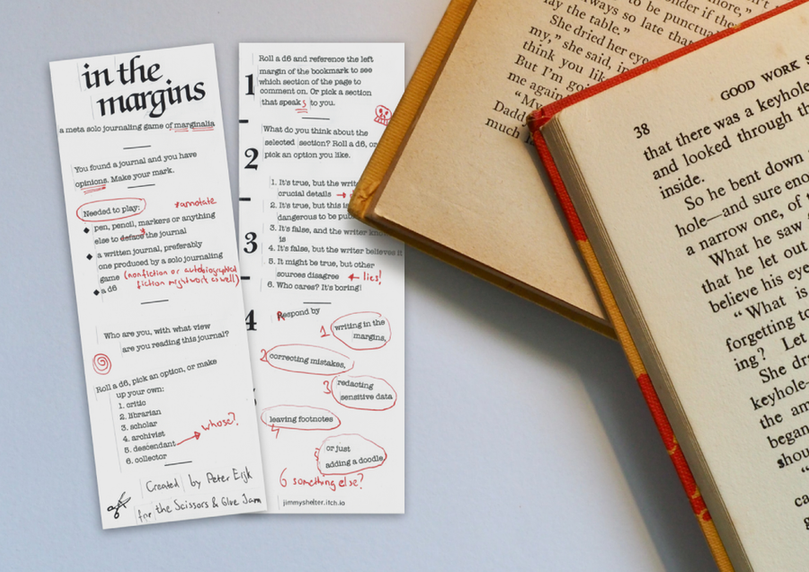 in the
margins
a meta solo journaling game of marginalia
You found a journal and you have
opinions. Make your mark.
Needed to play:
*annotate
pen, pencil, markers or anything
else to deface the journal
a written journal, preferably
one produced by a solo journaling
game (nonfiction or autobiographical
fiction might work as well)
a d6
Who are you, with what view
are you reading this journal?
Roll a d6, pick an option, or make
up your own:
1. critic
2. librarian
3. scholar
4. archivist
5. descendant
whose?
6. collector
Created by Peter Eijk
for the Scissors & Glue Jam
1
Roll a d6 and reference the left
margin of the bookmark to see
which section of the page to
comment on. Or pick a section
that speaks to you.
2
What do you think about the
selected section? Roll a d6, or
pick an option you like.
3
1. It's true, but the
crucial details
2. It's true, but this
dangerous to be
3. It's false, and the writer
is
4. It's false, but the writer believes it
5. It might be true, but other
sources disagree
lies!
6. Who cares? It's boring!
4
Respond by
1 writing in the
margins,
2 correcting mistakes,
3 redacting
sensitive data
leaving footnotes
4
or just
adding a doodle
6 something else?
jimmyshelter.itch.io
more,"
wonder if the
to be punctual
always so late that
lay the table."
She dried her eyes
my," she said,
think you
But I'm
me again
"My
Daddy
much
38
GOOD WORK
that there was a keyhole
and looked through
inside.
So he bent down
hole—and sure
a narrow one, of
What he saw
that he let out
believe his
"What is
forgetting to
ing? Let
She
keyhole
the
began